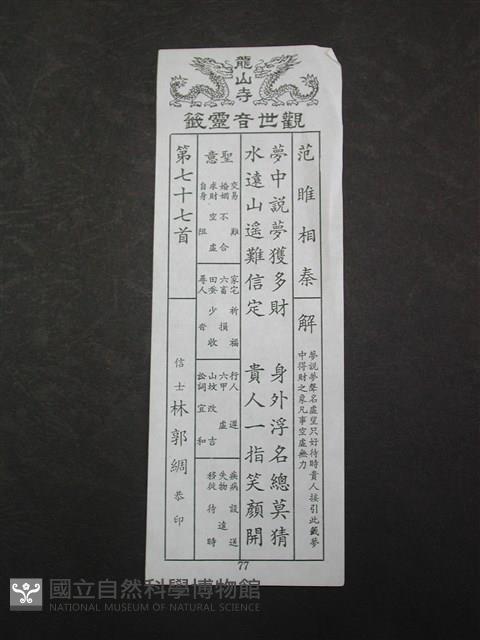 龍山寺
觀世音靈籤
范雎相秦
解
夢說夢聲名虛望只好待時貴人接引此籤夢
中得財之象凡事空虛無力
夢中説夢獲多財 身外浮名總莫猜
水遠山遥難信定 貴人一指笑顏開
聖意
交易 難
婚姻 不合
求財 空虛
自身 阻
家宅 祈福
六畜 損
田蚕 少收
尋人 音
行人 遲
六甲 虛
山坟 改吉
訟詞 宜和
疾病 設送
失物 遠
移徙 待時
第七十七首
信士 林郭綢 恭印
77
國立自然科學博物館
NATIONAL MUSEUM OF NATURAL SCIENCE